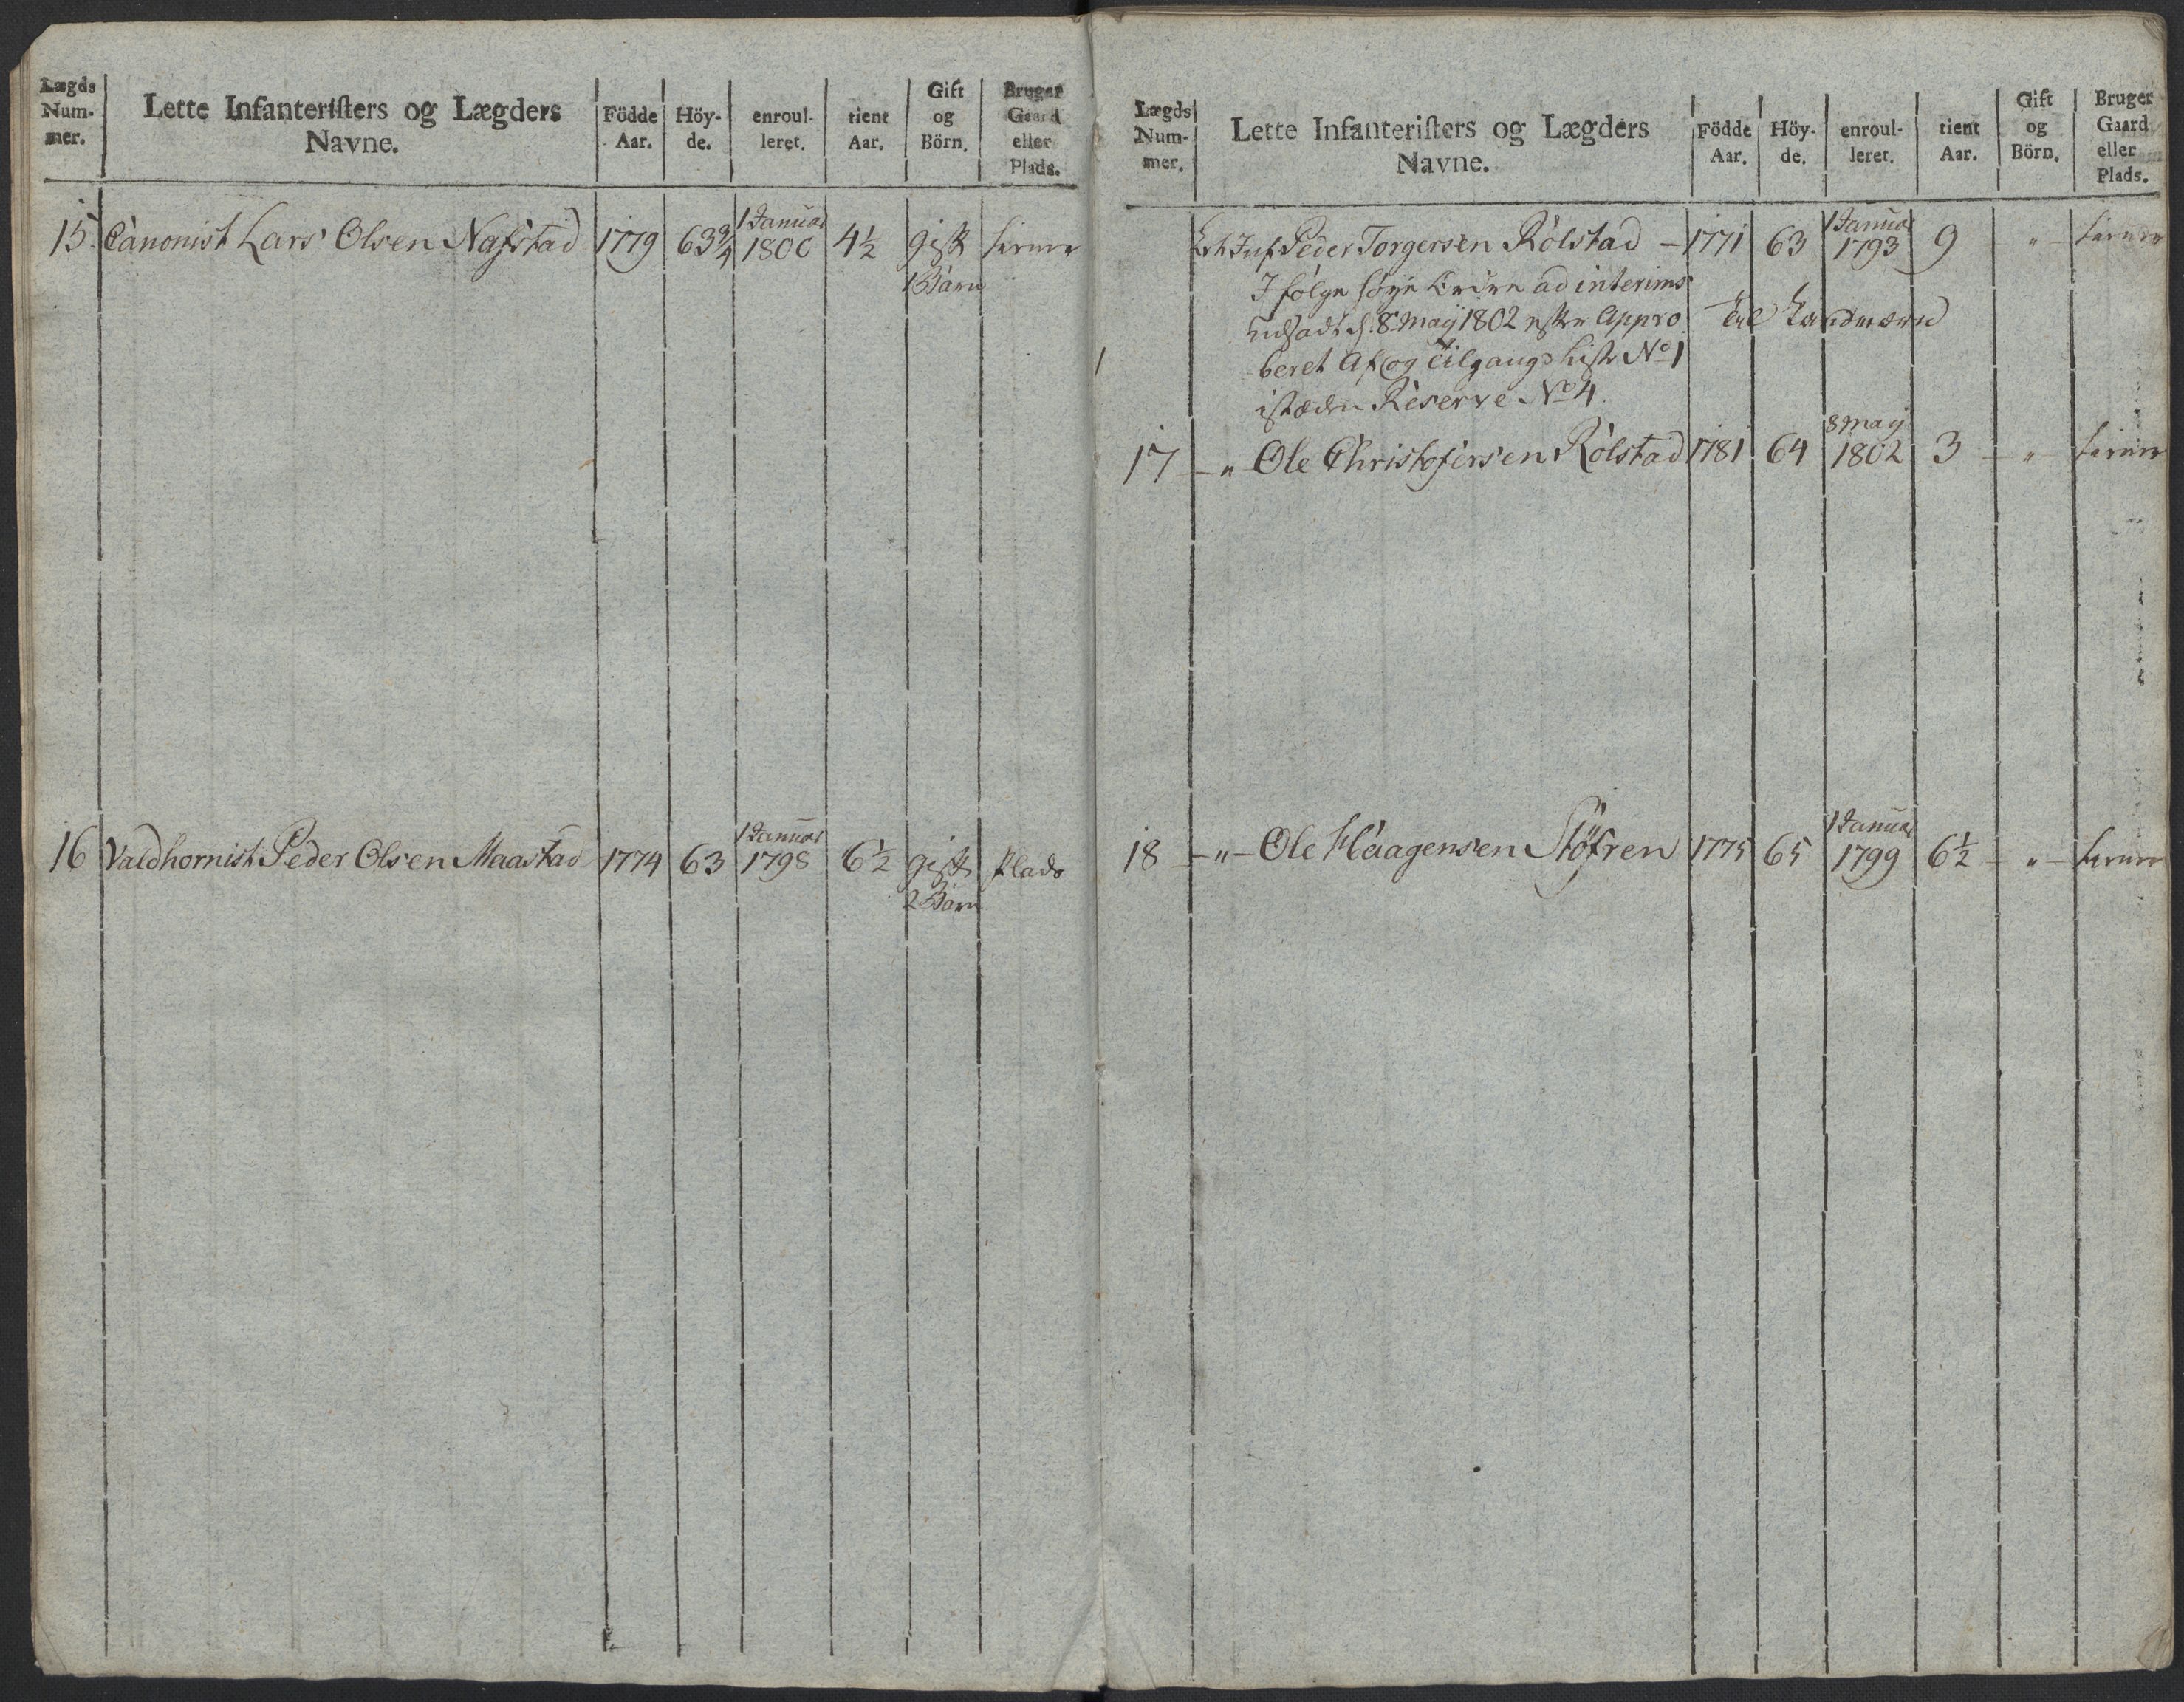 Lægds Num- mer.
Lette Infanteristers og Lægders Navne.
Födde Aar.
Höy- de.
enroul- leret.
tient Aar.
Gift og Börn.
Bruger Gaard eller Plads.
15. Canonist Lars Olsen Nafstad 1779 63¾ 1 Januar 1800 4½ gift 1 Barn
16 Valdhornist Peder Olsen Maastad 1774 63 1 Januar 1798 6½ gift 2 Børn Plads
Lægds Num- mer.
Lette Infanteristers og Lægders Navne.
Födde Aar.
Höy- de.
enroul- leret.
tient Aar.
Gift og Börn.
Bruger Gaard eller Plads.
Let Inf Peder Torgersen Rölstad - 1771 63 1 Januar 1793 9 "
I fölge höye ad interims
udsadt d. 8 May 1802 efter Appro til Landværn
beret Af og Tilgangs Liste No 1
istæden Reserve No 4.
17 - " Ole Christofersen Rölstad 1781 64 8 May 1802 3 - "
18 - " - Ole Haagensen Stöfren 1775 65 1 Januar 1799 6½ - " -